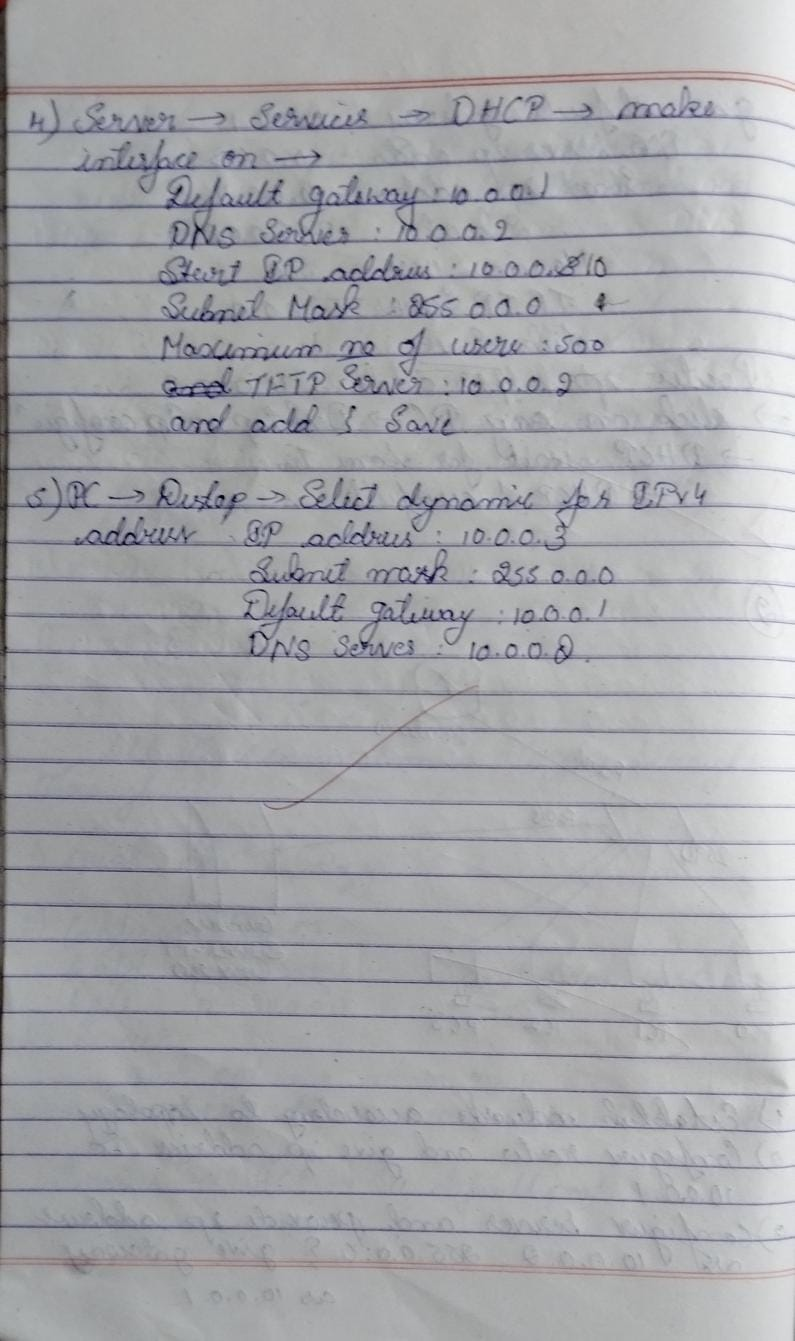 4) Server → Services → DHCP → make
interface on →
Default gateway : 10.0.0.1
DNS Server : 10.0.0.2
Start IP address : 10.0.0.10
Subnet Mask : 255.0.0.0
Maximum no of users : 500
and TFTP Server : 10.0.0.2
and add & Save
5) PC → Destop → Select dynamic for IPv4
address IP address : 10.0.0.3
Subnet mask : 255.0.0.0
Default gateway : 10.0.0.1
DNS Server : 10.0.0.2.